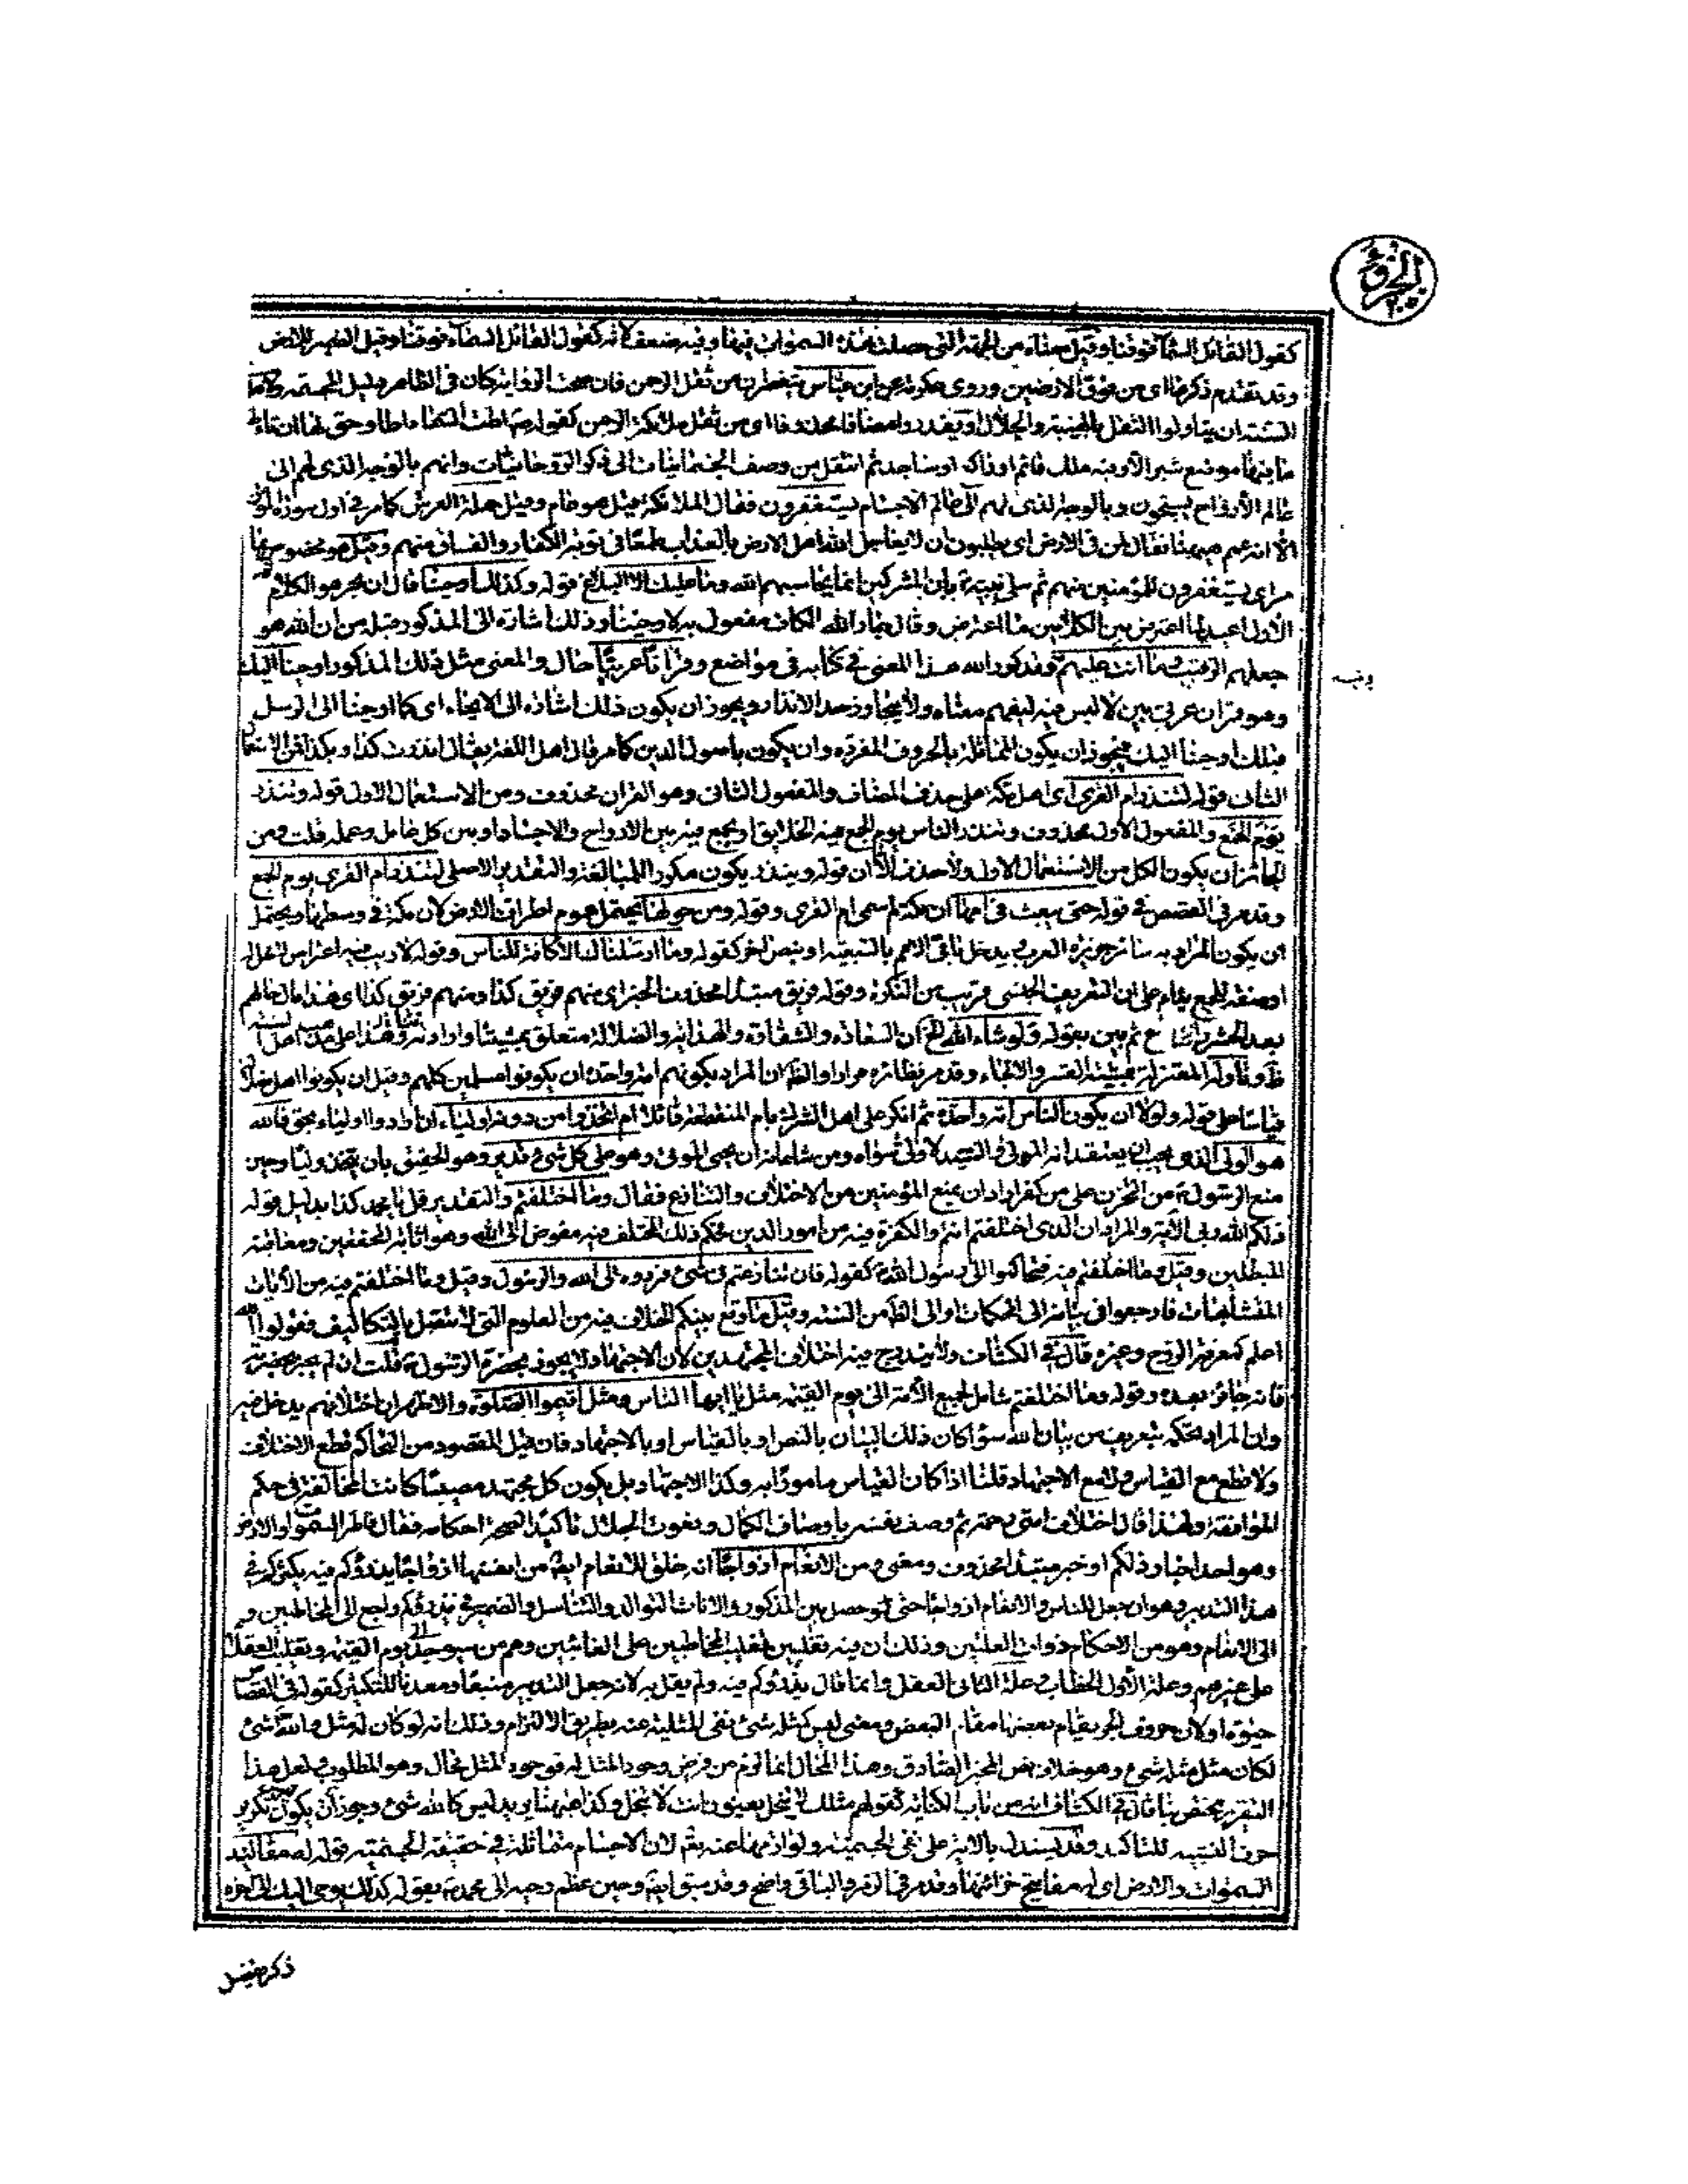 كقول القائل السماء فوقنا وقيل معناه من الجهة التى حصلت هذه السموات فيها وفيه ضعف لانه كقول القائل السماء فوقنا وقيل الضمير للارض
وقد تقدم ذكرها اى من فوق الارضين وروى عكرمة عن ابن عباس يتفطرن من ثقل الرحمن فان صحت الرواية كان فى الظاهر دليل المجسمة
السنة ان يتاولوا الثقل بالهيبة والجلال او يقدروا مضافا محذوفا اى من ثقل ملائكة الرحمن كقوله اطت السماء اطا وحق لها ان تئط
ما فيها موضع شبر الا وفيه ملك قائم او راكع او ساجد ثم انتقل من وصف الجسمانيات الى ذكر الروحانيات وانهم بالوجه الذى لهم الى
عالم الارواح يسبحون وبالوجه الذى لهم الى عالم الاجسام يستغفرون فقال الملائكة قيل هو عام وقيل حملة العرش كما مر فى اول سورة المؤمن
الا انه عمم ههنا فقال لمن فى الارض اى يطلبون ان لا يعاجل الله اهل الارض بالعذاب طمعا فى توبة الكفار والفساق منهم وقيل هو مخصوص بما
مر اى يستغفرون للمؤمنين منهم ثم سلى نبيه بان المشركين انما يحاسبهم الله وما عليك الا البلاغ قوله وكذلك اوحينا قال ان هو الكلام
الاول اعيد لما اعترض بين الكلامين ما اعترض وقال جار الله الكاف مفعول به لاوحينا وذلك اشارة الى المذكور قبله من ان الله هو
جعلهم الرقيب وما انت عليهم وقد كرر الله هذا المعنى فى كتابه فى مواضع وقرانا عربيا حال والمعنى مثل ذلك المذكور اوحينا اليك
وهو قران عربى بين لا لبس فيه ليفهم معناه ولا يتجاوز حد الانذار ويجوز ان يكون ذلك اشارة الى الايحاء اى كما اوحينا الى الرسل
قبلك اوحينا اليك فيجوز ان يكون المماثلة بالحروف المفردة وان يكون باصول الدين كما مر قال اهل اللغة يقال انذرت كذا وبكذا فمن الاستعمال
الثانى قوله لتنذر ام القرى اى اهل مكة على حذف المضاف والمفعول الثانى وهو القران محذوف ومن الاستعمال الاول قوله وتنذر
يوم الجمع والمفعول الاول محذوف وتنذر الناس يوم الجمع فيه الخلايق او يجمع فيه بين الارواح والاجساد او بين كل عامل وعمله قلت ومن
الجائز ان يكون الكل من الاستعمال الاول ولا حذف الا ان قوله وينذر يكون مكررا للمبالغة والتقدير الاصلى لتنذر ام القرى يوم الجمع
وقد مر فى القصص فى قوله حتى يبعث فى امها ان مكة لم سمى ام القرى وقوله ومن حولها يحتمل عموم اطراف الارض لان مكة فى وسطها ويحتمل
ان يكون المراد به سائر جزيرة العرب يدخل باقى الامم بالتبعية او بنص اخر كقوله وما ارسلناك الا كافة للناس وقوله لا ريب فيه اعتراض
او صفة للجمع بناء على ان التعريف الجنسى قريب من النكرة وقوله فريق مبتدا محذوف الخبر اى منهم فريق كذا ومنهم فريق كذا اى هذا مال حالهم
بعد الحشر ثم بين بقوله ولو شاء الله الخ ان السعادة والشقاوة والهداية والضلالة متعلق بمشيته وارادته وهذا على مذهب اهل السنة
ظ وتاوله المعتزلة بمشية القسر والالجاء وقد مر نظائره مرارا والظ ان المراد بكونهم امة واحدة ان يكونوا مسلمين كلهم وقيل ان يكونوا اهل ضلالة
قياسا على قوله ولولا ان يكون الناس امة واحدة ثم انكر على اهل الشرك بام المنقطعة قائلا ام اتخذوا من دونه اولياء ان ارادوا اولياء بحق فالله
هو الولى الذى يجب ان يعتقد انه المولى والسيد لا ولى سواه ومن شانه ان يحيى الموتى وهو على كل شئ قدير وهو الحقيق بان يتخذ وليا وحين
منع الرسول من الحزن على من كفر اراد ان يمنع المؤمنين من الاختلاف والتنازع فقال وما اختلفتم والتقدير قل يا محمد كذا بدليل قوله
ذلكم الله ربى الاية والمراد ان الذى اختلفتم انتم والكفرة فيه من امور الدين فحكم ذلك المختلف فيه مفوض الى الله وهو اثابة المحقين ومعاقبة
المبطلين وقيل وما اختلفتم فيه فتحاكموا الى رسول الله كقوله فان تنازعتم فى شئ فردوه الى الله والرسول وقيل وما اختلفتم فيه من الآيات
المتشابهات فارجعوا فى بيانه الى المحكمات او الى الظ من السنة وقيل ما وقع بينكم الخلاف فيه من العلوم التى لا تتصل بالتكاليف فقولوا الله
اعلم كمعرفة الروح وغيره قال فى الكشاف ولا يندرج فيه اختلاف المجتهدين لان الاجتهاد لا يجوز بحضرة الرسول قلت ان لم يجز بحضرته
فانه جائز بعده وقوله وما اختلفتم شامل لجميع الامة الى يوم القيمة مثل يا ايها الناس ومثل اقيموا الصلوة والاظهر ان اختلافهم يدخل فيه
وان المراد تحكمه بتعريف من بيان الله سواء كان ذلك البيان بالنص او بالقياس او بالاجتهاد فان قيل المقصود من التحاكم قطع الاختلاف
ولا قطع مع القياس ولا مع الاجتهاد قلنا اذا كان القياس مامورا به وكذا الاجتهاد بل يكون كل مجتهد مصيبا كانت المخالفة فى حكم
الموافقة ولهذا قال اختلاف امتى رحمة ثم وصف نفسه باوصاف الكمال ونعوت الجلال تاكيدا لصحة احكامه فقال فاطر السموات والارض
وهو احد اخبار ذلكم او خبر مبتدا محذوف ومعنى ومن الانعام ازواجا انه خلق للانعام ايضا من انفسها ازواجا يذرؤكم فيه يكثركم فى
هذا التدبير وهو ان جعل للناس والانعام ازواجا حتى حصل بين الذكور والاناث التوالد والتناسل والضمير فى يذرؤكم راجع الى المخاطبين و
الى الانعام وهو من الاحكام ذوات العلتين وذلك ان فيه تغليبين تغليب المخاطبين على الغائبين وهم من سيوجد الى يوم القيمة وتغليب العقلاء
على غيرهم وعلة الاول الخطاب وعلة الثانى العقل وانما قال يذرؤكم فيه ولم يقل به لانه جعل التدبير منبعا ومعدنا للتكثير كقوله فى القصاص
حيوة او لان حروف الجر يقام بعضها مقام البعض ومعنى ليس كمثله شئ نفى المثلية عنه بطريق الالتزام وذلك انه لو كان له مثل والله شئ
لكان مثل مثله شئ وهو خلاف نص المخبر الصادق وهذا المحال انما لزم من فرض وجود المثل له فوجود المثل محال وهو المطلوب ولعل هذا
التقرير مختص بنا قال فى الكشاف انه من باب الكناية كقولهم مثلك لا يبخل يعنون انت لا تبخل وكذا ههنا يريد ليس كالله شئ ويجوز ان يكون تكرير
حرف التشبيه للتاكيد وقد يستدل بالاية على نفى الجسمية ولوازمها عنه تعالى لان الاجسام متماثلة فى حقيقة الجسمية قوله له مقاليد
السموات والارض اى له مفاتيح خزائنها وقد مر فى الزمر والباقى واضح وقد سبق ايضا وحين عظم وحيه الى محمد بقوله كذلك يوحى اليك الى اخره
ذكر تفصيل